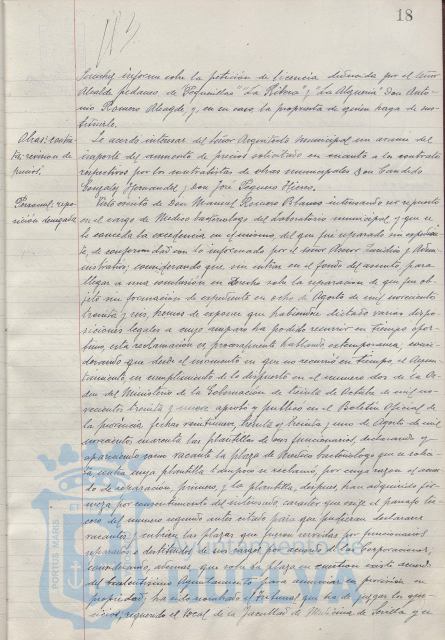 18
Sánchez informe sobre la petición de licencia deducida por el Señor
Alcalde pedáneo de "Pequenillas" "La Ribera" y "La Alquería" Don Anto-
nio Romero Alcayde y, en su caso, la propuesta de quien haya de sus-
tituirle.
Obras: contra-
tas: revision de
precios.
Se acordó interesar del Señor Arquitecto municipal un avance del
importe del aumento de precios solicitado en cuanto a los contratos
respectivos por los contratistas de obras municipales Don Candido
Gonzalez Hernandez y Don José Piqueras
Personal: repo-
sición denegada
Visto escrito de Don Manuel Romero Blanco interesando ser repuesto
en el cargo de Medico bacteriologo del Laboratorio municipal y que se
le conceda la excedencia en el mismo, del que fué separado sin expedien-
te, de conformidad con lo informado por el Señor Asesor Juridico y Admi-
nistrativo; considerando que sin entrar en el fondo del asunto, para
llegar a una conclusión en derecho sobre la separación de que fué ob-
jeto sin formación de expediente en ocho de Agosto de mil novecientos
treinta y seis, hemos de exponer que habiendose dictado varias dispo-
siciones legales a cuyo amparo ha podido recurrir en tiempo opor-
tuno, esta reclamación es procesalmente hablando extemporanea; consi-
derando que desde el momento en que no recurrió en tiempo el Ayun-
tamiento en cumplimiento de lo dispuesto en el numero dos de la Or-
den del Ministerio de la Gobernación de treinta de Octubre de mil no-
vecientos treinta y nueve aprobó y publicó en el Boletin Oficial de
la provincia, fechas veintinueve, treinta y treinta y uno de Agosto de mil
novecientos cuarenta las plantillas de sus funcionarios, declarando y
apareciendo como vacante la plaza de Medico bacteriologo que se
contra cuya plantilla tampoco se reclamó, por cuya razon el acuer-
do de separación, primero, y la plantilla despues, han adquirido fir-
meza por consentimiento del interesado, caracter que exige el parrafo ter-
cero del numero segundo antes citado para que pudieran declararse
vacantes y cubrir las plazas que fueron servidas por funcionarios
separados o destituidos de sus cargos por acuerdo de las Corporaciones;
considerando, ademas, que sobre la plaza en cuestion existe acuerdo
del Excelentisimo Ayuntamiento para anunciar su provisión en
propiedad; ha sido nombrado el Tribunal que ha de juzgar los ejer-
cicios, requerido el Vocal de la Facultad de Medicina de Sevilla y en
PORTUS MARIS